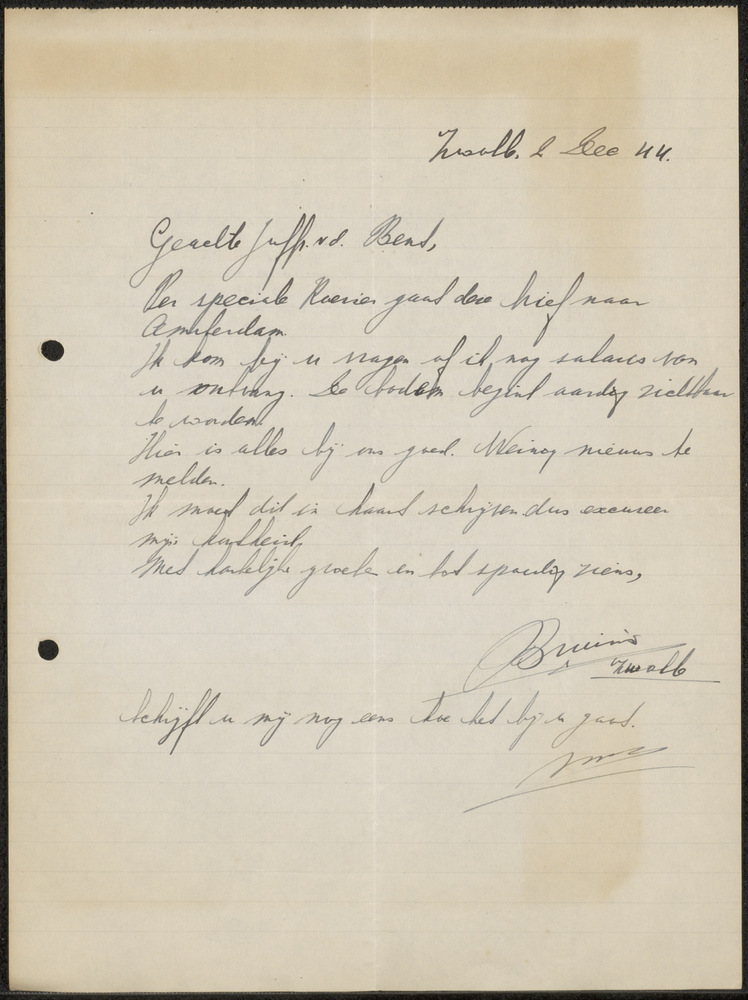 Zwolle. 2 Dec 44.
Geachte Juffr. v.d. Bend,
Per speciale Koerier gaat deze brief naar
Amsterdam.
Ik kom bij u vragen of ik nog salaris van
u ontvang. De bodem begint aardig zichtbaar
te worden.
Hier is alles bij ons goed. Weinig nieuws te
melden.
Ik moet dit in haast schrijven dus excuseer
mijn kortheid.
Met hartelijke groeten en tot spoedig ziens,
Bruins
Zwolle
Schrijft u mij nog eens hoe het bij u gaat.